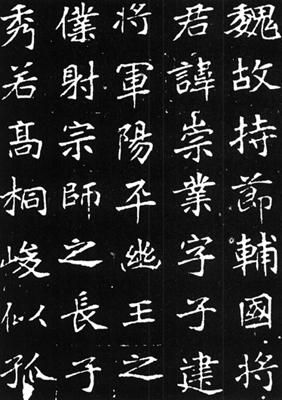 魏故持節輔國將
君諱崇業字子建
將軍陽平幽王之
僕射宗師之長子
秀若髙桐峻似孤